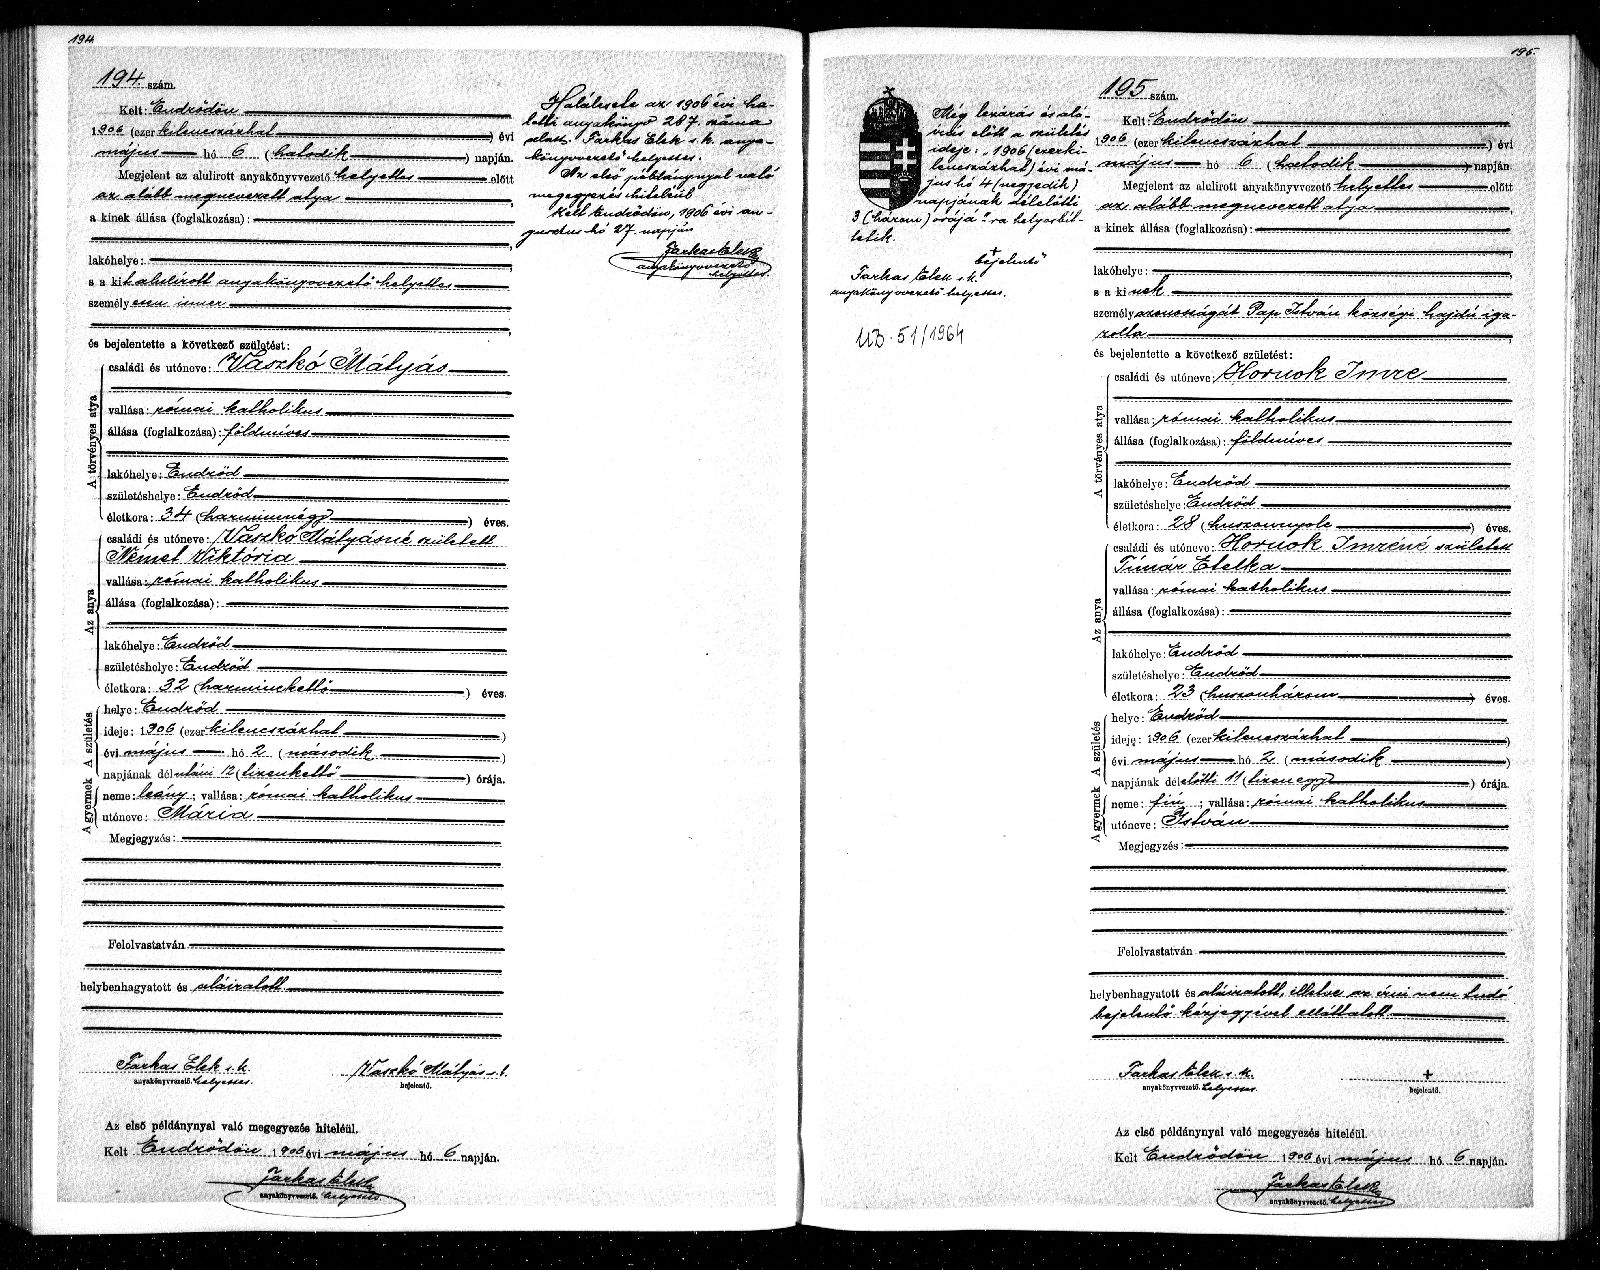 194.
194. szám.
Kelt: Endrődön
1906 (ezer kilenczszázhat ) évi
május hó 6 (hatodik ) napján.
Megjelent az alulirott anyakönyvvezető helyettes előtt
az alább megnevezett atya
a kinek állása (foglalkozása):
lakóhelye:
s a kit alulirott anyakönyvvezető helyettes
személyesen ismer
és bejelentette a következő születést:
A törvényes atya
családi és utóneve: Vaszkó Mátyás
vallása: római katholikus
állása (foglalkozása): földmíves
lakóhelye: Endrőd
születéshelye: Endrőd
életkora: 34 (harmincnégy ) éves.
Az anya
családi és utóneve: Vaszkó Mátyásné született
Német Viktória
vallása: római katholikus
állása (foglalkozása):
lakóhelye: Endrőd
születéshelye: Endrőd
életkora: 32 (harminckettő ) éves.
A születés
helye: Endrőd
ideje: 1906 (ezer kilencszázhat )
évi május hó 2 (második )
napjának délutáni 12 (tizenkettő ) órája.
A gyermek
neme: leány; vallása: római katholikus
utóneve: Mária
Megjegyzés:
Felolvastatván
helybenhagyatott és aláiratott
Farkas Elek s.k. Vaszkó Mátyás s.k.
anyakönyvvezető helyettes. bejelentő.
Az első példánynyal való megegyezés hiteléül.
Kelt Endrődön 1906 évi május hó 6 napján.
Farkas Elek
anyakönyvvezető. helyettes
Halálesete az 1906 évi ha-
lotti anyakönyv 287 száma
alatt. Farkas Elek s.k. anya-
könyvvezető helyettes.
Az első példánynyal való
megegyezés hiteléül
Kelt Endrődön, 1906 évi au-
gusztus hó 27 napján
Farkas Elek
anyakönyvvezető
helyettes
Még lezárás és alá-
írás előtt a születés
ideje: "1906 (ezerki-
lencszázhat) évi má-
jus hó 4 (negyedik)
napjának délelőtti
3 (három) órájá"-ra helyesbít-
tetik.
+
bejelentő
Farkas Elek s.k.
anyakönyvvezető helyettes.
UB. 51/1964
195.
195 szám.
Kelt: Endrődön
1906 (ezer kilencszázhat ) évi
május hó 6 (hatodik ) napján
Megjelent az alulirott anyakönyvvezető helyettes előtt
az alább megnevezett atya
a kinek állása (foglalkozása):
lakóhelye:
s a kinek
személyazonosságát Pap István községi hajdú iga-
zolta
és bejelentette a következő születést:
A törvényes atya
családi és utóneve: Hornok Imre
vallása: római katholikus
állása (foglalkozása): földmíves
lakóhelye: Endrőd
születéshelye: Endrőd
életkora: 28 (huszonnyolc ) éves.
Az anya
családi és utóneve: Hornok Imréné született
Tímár Etelka
vallása: római katholikus
állása (foglalkozása):
lakóhelye: Endrőd
születéshelye: Endrőd
életkora: 23 (huszonhárom ) éves.
A születés
helye: Endrőd
ideje: 1906 (ezer kilencszázhat )
évi május hó 2 (második )
napjának délelőtti 11 (tizenegy ) órája.
A gyermek
neme: fiú ; vallása: római katholikus
utóneve: István
Megjegyzés:
Felolvastatván
helybenhagyatott és aláiratott, illetve az írni nem tudó
bejelentő kézjegyével elláttatott
Farkas Elek s.k. +
anyakönyvvezető. helyettes bejelentő.
Az első példánynyal való megegyezés hiteléül.
Kelt Endrődön 1906 évi május hó 6 napján.
Farkas Elek
anyakönyvvezető. helyettes